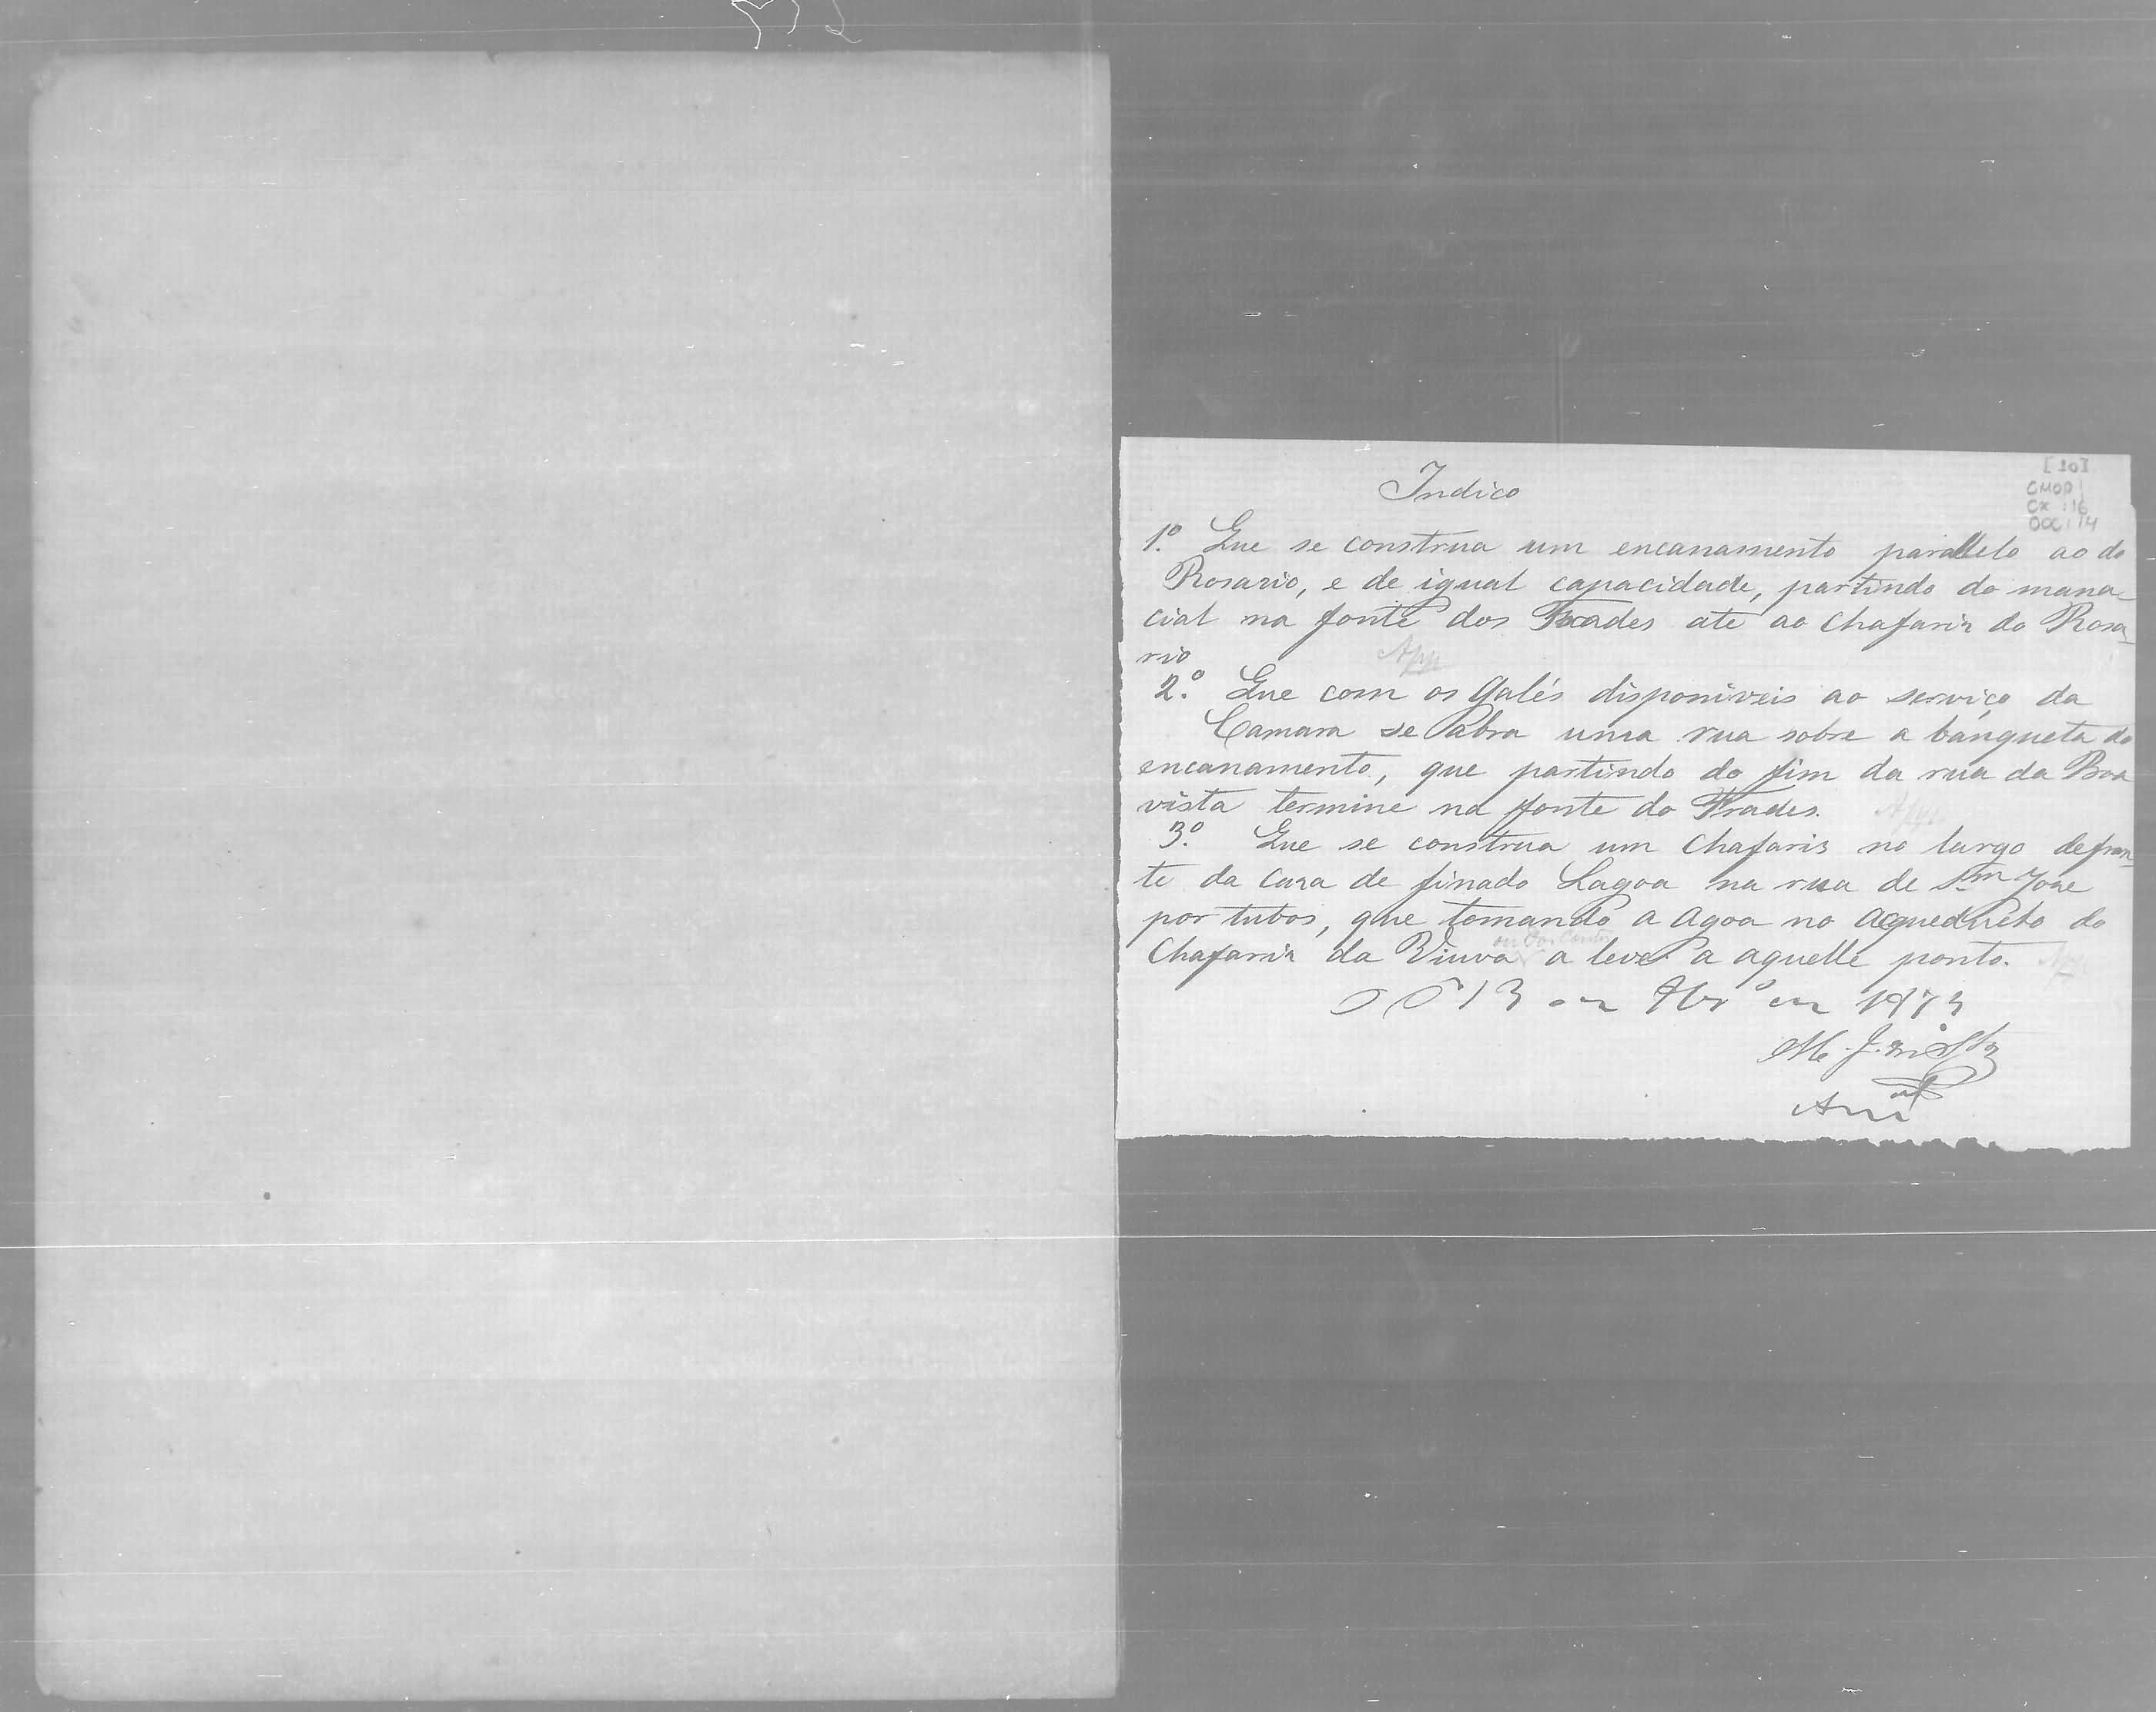 [10]
CMOP
CX: 16
DOC: 14
Indico
1º. Que se construa um encanamento parallelo ao do
Rosario, e de igual capacidade, partindo do mana-
cial na fonte dos Frades ate ao Chafariz do Rosa-
rio
App
2º. Que com os Galés disponiveis ao serviço da
Camara se abra uma rua sobre a banqueta do
encanamento, que partindo do fim da rua da Boa
vista termine na fonte do Frades.
App
3º. Que se construa um Chafaris no largo defron-
te da Casa de finado Lagoa na rua de Jose
por tubos, que tomando a agoa no acqueducto do
Chafariz da Viuva ou a leve a aquelle ponto.
App
13 1873
M. J.